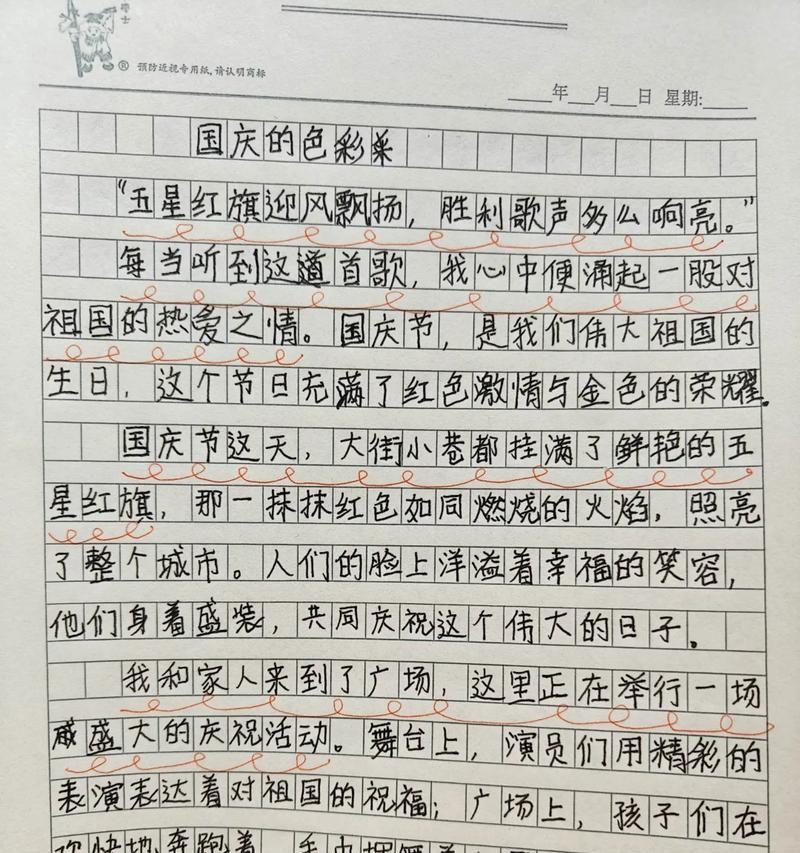 博士
® 预防近视专用纸,请认明商标
年 月 日 星期:
国庆的色彩
“五星红旗迎风飘扬，胜利歌声多么响亮。”
每当听到这道首歌，我心中便涌起一股对
祖国的热爱之情。国庆节，是我们伟大祖国的
生日，这个节日充满了红色激情与金色的荣耀。
国庆节这天，大街小巷都挂满了鲜艳的五
星红旗，那一抹抹红色如同燃烧的火焰，照亮
了整个城市。人们的脸上洋溢着幸福的笑容，
他们身着盛装，共同庆祝这个伟大的日子。
我和家人来到了广场，这里正在举行一场
盛大的庆祝活动。舞台上，演员们用精彩的
表演表达着对祖国的祝福；广场上，孩子们在
欢快地奔跑着